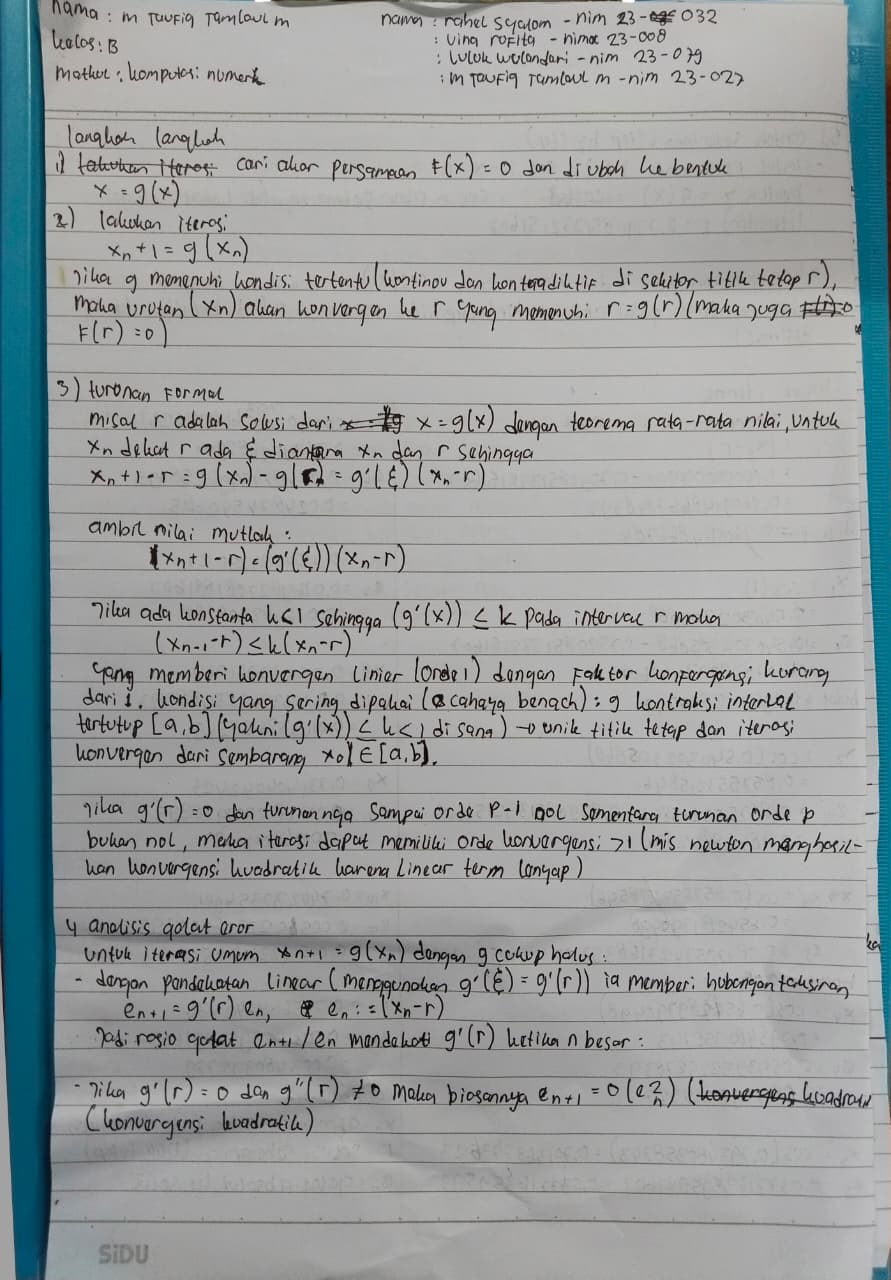 nama : m Taufiq Tamlaul m
kelas : B
matkul : komputasi numerik
nama : rahel syalom - nim 23-032
: Vina rofita - nim 23-008
: Luluk wulandari - nim 23-079
: m Taufiq Tamlaul m - nim 23-027
langkah langkah
1) lakukan iterasi cari akar persamaan F(x) = 0 dan di ubah ke bentuk
x = g(x)
2) lakukan iterasi
xn+1 = g(xn)
Jika g memenuhi kondisi tertentu (kontinou dan kontradiktif di sekitar titik tetap r),
maka urutan (xn) akan konvergen ke r yang memenuhi r = g(r) (maka juga
F(r) = 0)
3) turunan Formal
misal r adalah Solusi dari x = g(x) dengan teorema rata-rata nilai, untuk
xn dekat r ada ξ diantara xn dan r sehingga
xn+1-r = g(xn) - g(r) = g'(ξ) (xn-r)
ambil nilai mutlak :
(xn+1-r) = (g'(ξ)) (xn-r)
Jika ada konstanta k<1 sehingga (g'(x)) ≤ k pada interval r maka
(xn-1-r) ≤ k(xn-r)
yang memberi konvergen linier (orde 1) dengan Faktor konfergensi kurang
dari 1. kondisi yang sering dipakai (cahaya benach) : g kontraksi interval
tertutup [a,b] (yakni (g'(x)) ≤ k<1 di sana) → unik titik tetap dan iterasi
konvergen dari sembarang x0 ∈ [a,b].
Jika g'(r) = 0 dan turunannya sampai orde p-1 nol sementara turunan orde p
bukan nol, maka iterasi dapat memiliki orde konvergensi >1 (mis newton menghasil-
kan konvergensi kuadratik karena Linear term lenyap)
4 analisis galat eror
untuk iterasi umum xn+1 = g(xn) dengan g cukup halus :
- dengan pendekatan linear (menggunakan g'(ξ) = g'(r)) ia memberi hubungan taksiran
en+1 = g'(r) en, en := (xn-r)
Jadi rasio galat en+1 / en mendekati g'(r) ketika n besar :
- Jika g'(r) = 0 dan g''(r) ≠ 0 maka biasannya en+1 = O(e²n) (konvergens kuadratik
(konvergensi kuadratik)
SiDU